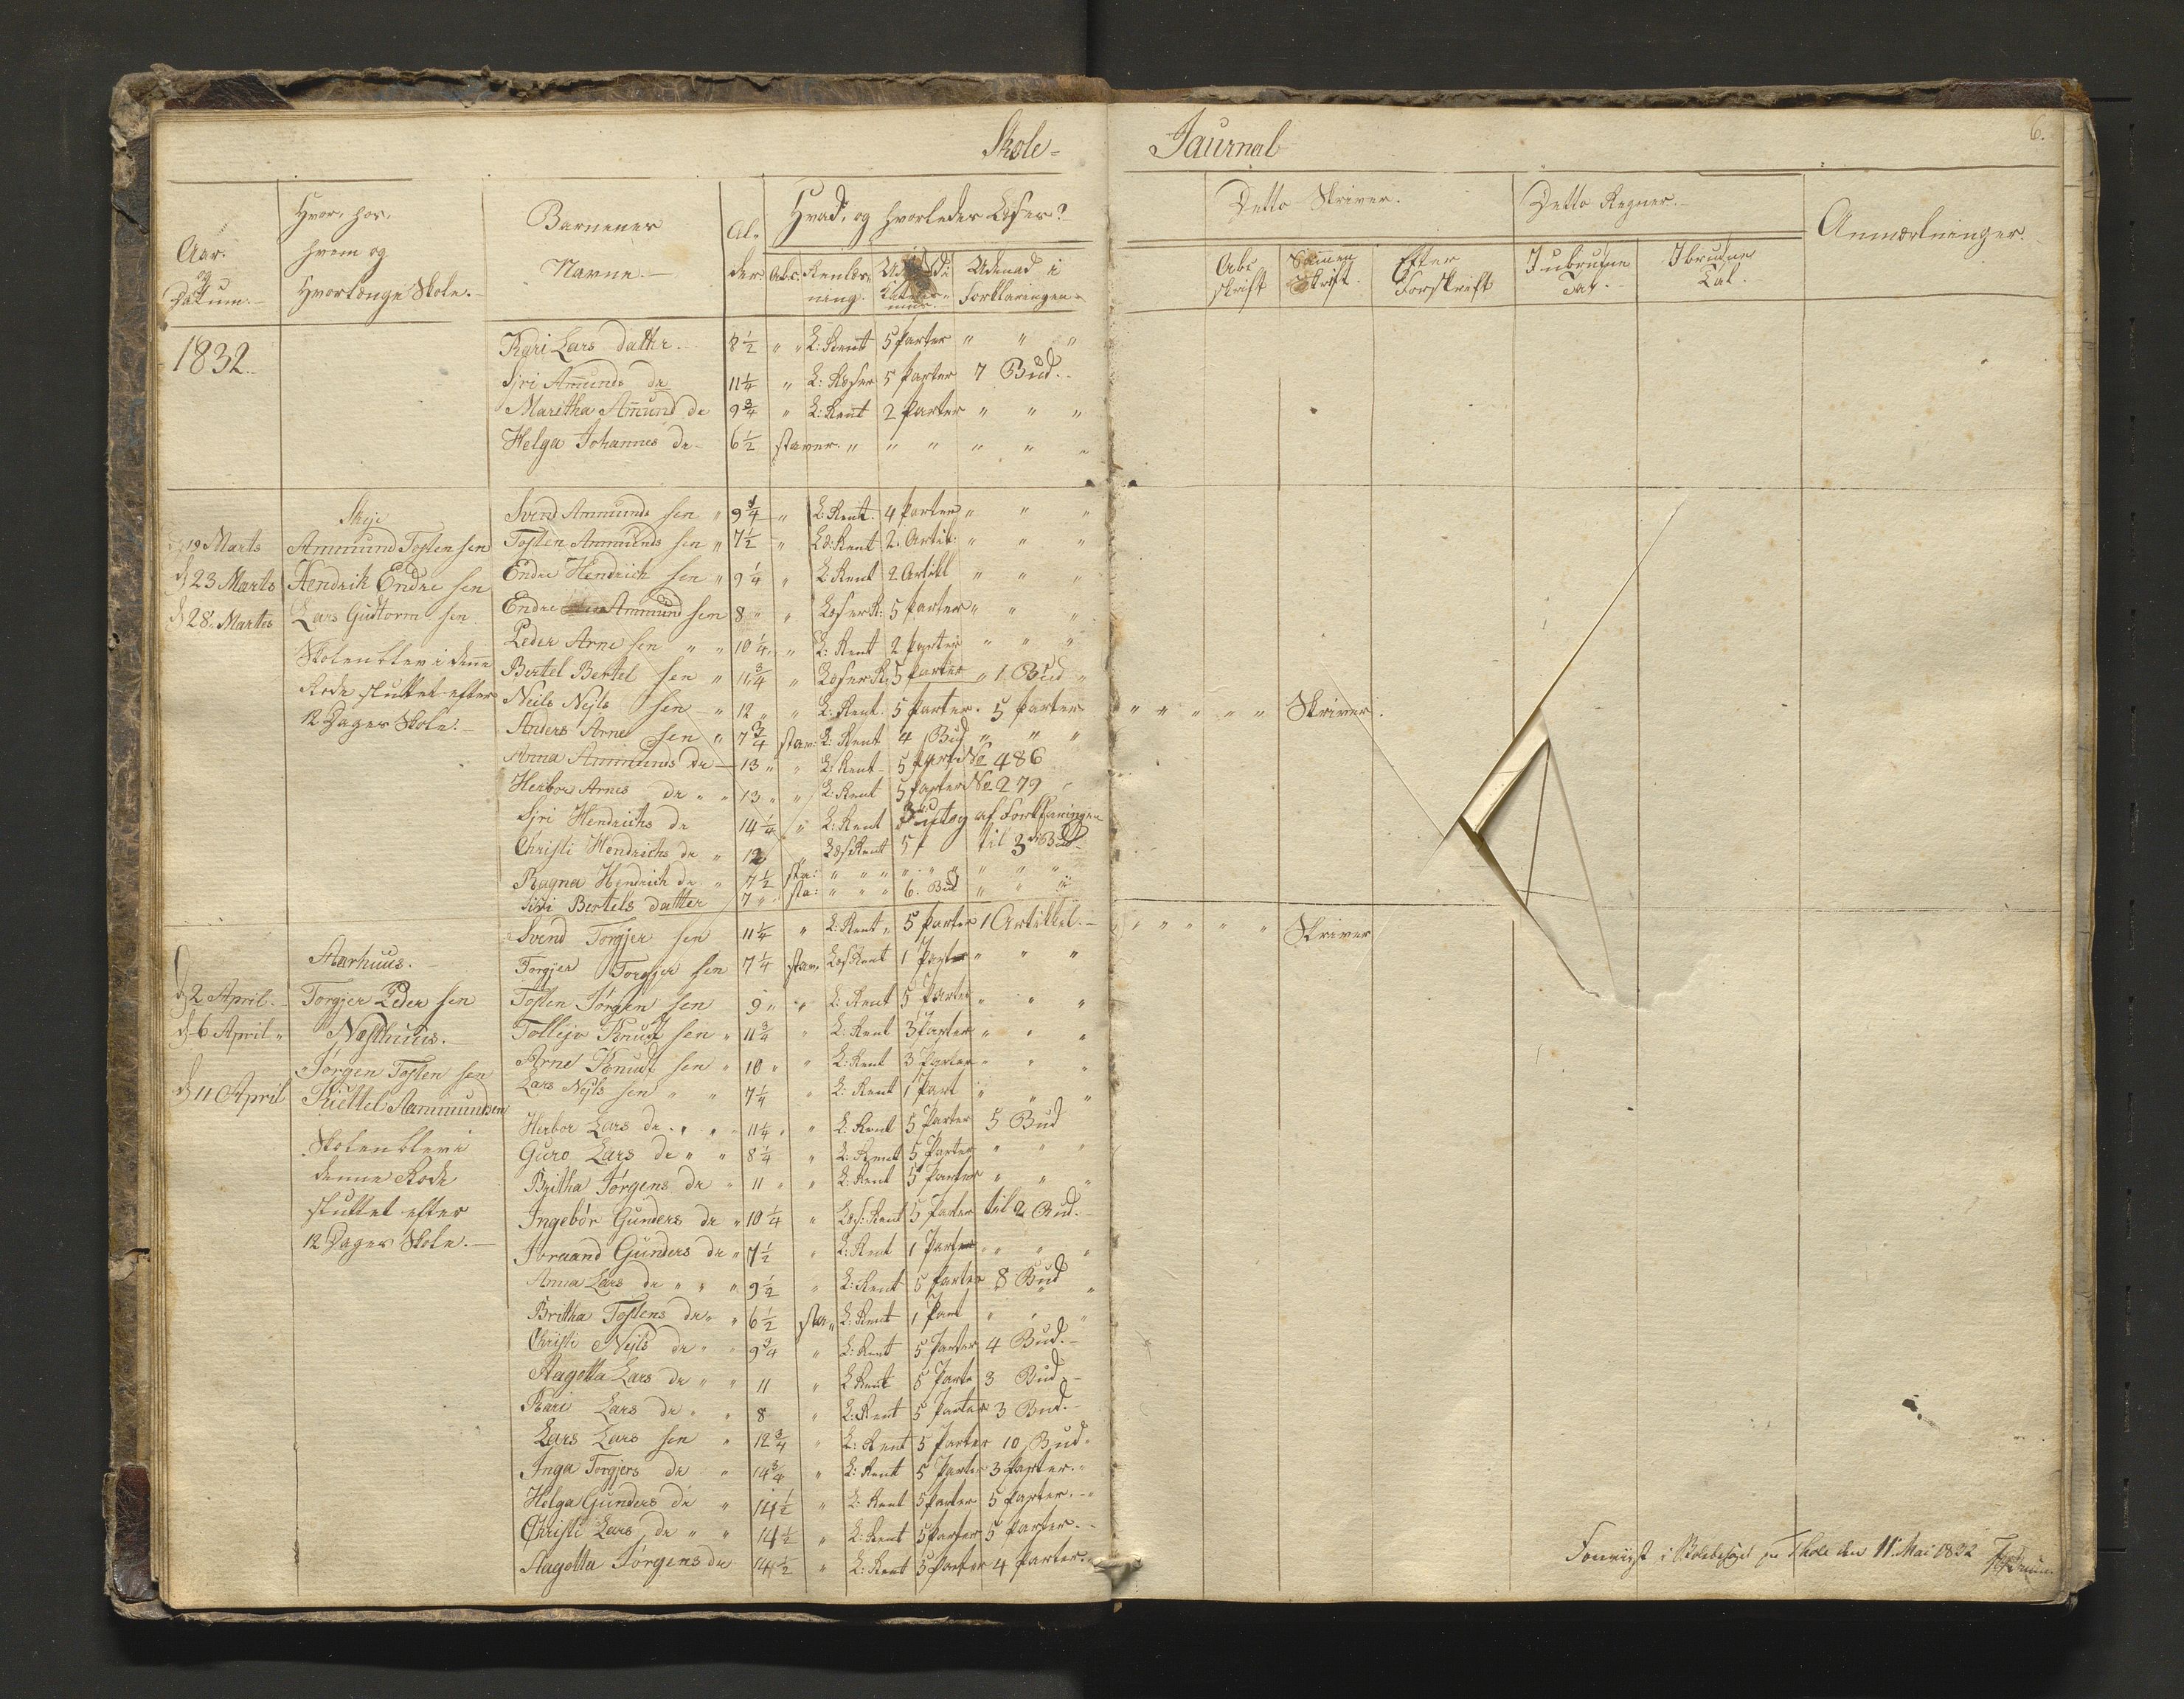 Skole- Jaurnal
6.
Aar. og Datum.
Hvor, hos, hvem og Hvorlænge Skole.
Barnenes Navne.
Al- der.
Hvad, og hvorledes Læser?
Abc. Renlæs- ning. Udenad i Udenad i Forklaringen
Detto Skriver.
Abc skrift Samen Skrift. Efter Forskrift
Detto Regner.
Jubrudne Tal. Jbrudne Tal.
Anmærkninger.
1832. Kari Lars datter. 8 1/2 " " L: Rent 5 Parter " " "
Sjri Amunds dr 11 1/4 " L: Læser 5 Parter 7 Bud.
Maritha Amund dr 9 3/4 " L: Rent 2 Parter " " "
Helga Johannes dr 6 1/2 staver " " " " " "
Skeje Svend Ammunds sen " 9 3/4 " L: Rent. 4 Parter " " "
d 19 Marts Ammund Tosten sen Tosten Ammunds sen " 7 1/2 " Læ: Rent 2. Artik: " " "
d 23 Marts Hendrik Endre sen Endre Hendrich sen " 9 1/4 " L: Rent 2 Artikl " " "
d 28. Martes Lars Guttorm sen Endre Ammund sen 8 " " Læser R: 5 Parter " " "
Skolen blev i denne Peder Arne sen " " 10 1/4 " L: Rent 2 Parter " " "
Rode sluttet efter Bertel Bertel sen " 11 3/4 " Læser R: 5 Parter " 1 Bud "
12 Dages Skole. Neils Nejls sen " 12 " " L: Rent. 5 Parter. 5 Parter " " " " " Skriver.
Anders Arne sen " 7 3/4 stav: L: Rent 4 Bud " " "
Anna Ammunds dr 13 " " L: Rent 5 Parte No 486
Herbor Arnes dr " " 13 " " L: Rent 5 Parter No 279
Sjri Hendrichs dr 14 1/4 " L: Rent af Forklaringen
Christi Hendrichs dr " 12 " Læs Rent 5 P til 3de Bud
Ragna Hendrich dr " 7 1/2 sta: " " " " " " " " "
Siri Bertels datter 7 " sta: " " " 6. Bud " " "
Svend Torgjer sen 11 1/4 " L: Rent " 5 Parter 1 Artikkel. " " " " " Skriver
Aarhuus. Torgjer Torgjer sen 7 1/4 stav. Læs Rent 1 Part " " "
d 2 April. Torgjer Peder sen Tosten Jørgen sen 9 " " L: Rent 5 Parter " " "
d 6 April " Næsthuus. Tollejv Knudt sen " 11 3/4 " L: Rent 3 Parter " " "
Jørgen Tosten sen Arne Knudt sen " 10 " " L: Rent 3 Parter " " "
d 11 April Kiettel Aammundsen Lars Nejls sen " " 7 1/4 " L: Rent 1 Part " " "
Skolen blev i Herbor Lars dr " " 11 1/4 " " L: Rent 5 Parter 5 Bud
denne Rode Guro Lars dr " " 8 1/4 " L: Rent 5 Parter " " "
sluttet efter Britha Jørgens dr " 11 " " L: Rent 5 Parter " " "
12 Dages Skole. Ingebór Gunders dr " 10 1/4 " Læs: Rent 5 Parter til 2 Bud.
Joraand Gunders dr " 7 1/2 " L: Rent 1 Parter " " "
Anna Lars dr " " " 9 1/2 " L: Rent 5 Parter 8 Bud
Britha Tostens dr " " 6 1/2 sta " L: Rent 1 Part " " "
Christi Nejls dr " " 9 3/4 " L: Rent 5 Parter 4 Bud.
Aagotta Lars dr " " 11 " L Rent 5 Parte 3 Bud
Kari Lars dr " " 8 " L: Rent 5 Parter 3 Bud.
Lars Lars sen " 12 3/4 " L: Rent 5 Parter 10 Bud.
Inga Torgjers dr " 14 3/4 " L: Rent 5 Parter 3 Parter.
Helga Gunders dr " 14 1/2 " L: Rent 5 Parter 5 Parter.
Christi Lars dr " " 14 1/2 " L: Rent 5 Parter 5 Parter.
Aagotta Jørgens dr 14 1/2 " L: Rent 5 Parter 4 Parter.
Foreviist i Skolebesøget den 11 Mai 1832